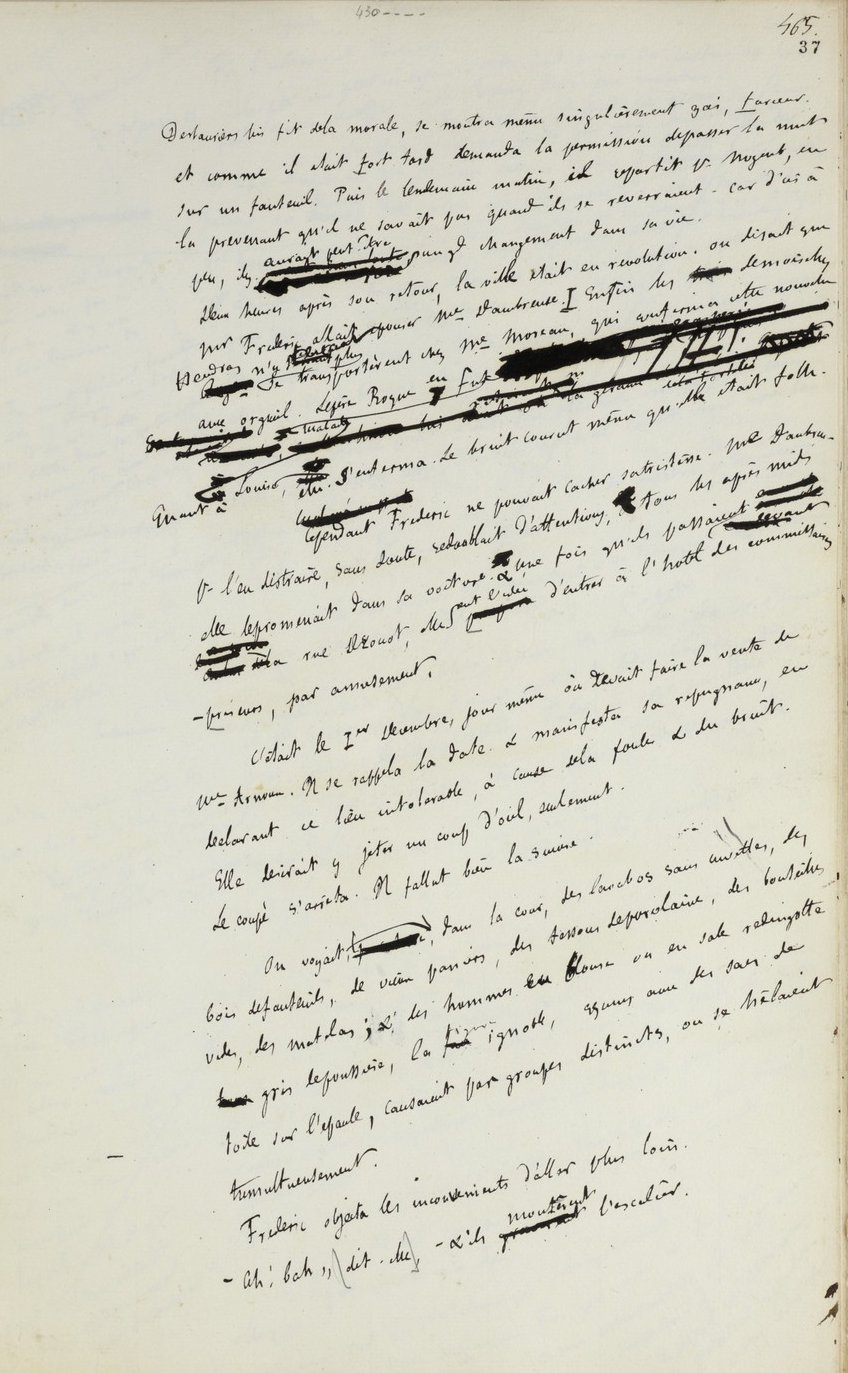 430----
465.
37
Deslauriers lui fit dela morale, se montra même singulièrement gai, farceur.
et comme il était fort tard demanda la permission depasser la nuit
sur un fauteuil. Puis le lendemain matin, il repartit pr Nogent, en
la prevenant qu'il ne savait pas quand ils se reverraient. Car d'ici à
peu, il y aurait peut-être un gd changement dans sa vie.
Deux heures après son retour, la ville était en revolution. on disait que
mr Frederic allait épouser Me Dambreuse. Enfin les trois demoiselles
Auger n'y tenant plus se transportèrent chez Me Moreau, qui confirma cette nouvelle
avec orgueil. Lepère Roque en fut malade
Quant à Louise, elle s'enferma. Le bruit courut même qu'elle était folle.
Cependant Frederic ne pouvait cacher satristesse. Me Dambreu-
pr l'en distraire, sans doute, redoublait d'attentions, tous les après midi
elle lepromenait dans sa voiture. & une fois qu'ils passaient
dela rue Drouot, elle eut l'idée d'entrer à l'hotel des commissaires
-priseurs, par amusement.
C'était le 1er Decembre, jour même où devait faire la vente de
Me Arnoux. Il se rappela la date. & manifesta sa repugnance, en
declarant ce lieu intolerable, à cause dela foule & du bruit.
Elle desirait y jeter un coup d'oeil, seulement.
Le coupé s'arreta. Il fallut bien la suivre.
On voyait, dans la cour, des lavabos sans cuvettes, des
bois defauteuils, de vieux paniers, des tessons deporcelaine, des bouteilles
vides, des matelas; & des hommes en blouse ou en sale redingotte
gris depoussière, la figure ignoble, quelques uns avec des sacs de
toile sur l'epaule, causaient par groupes distincts, ou se hêlaient
tumultueusement.
Frederic objecta les inconvenients d'aller plus loin.
- Ah! bah », (dit-elle), - & ils montèrent l'escalier.